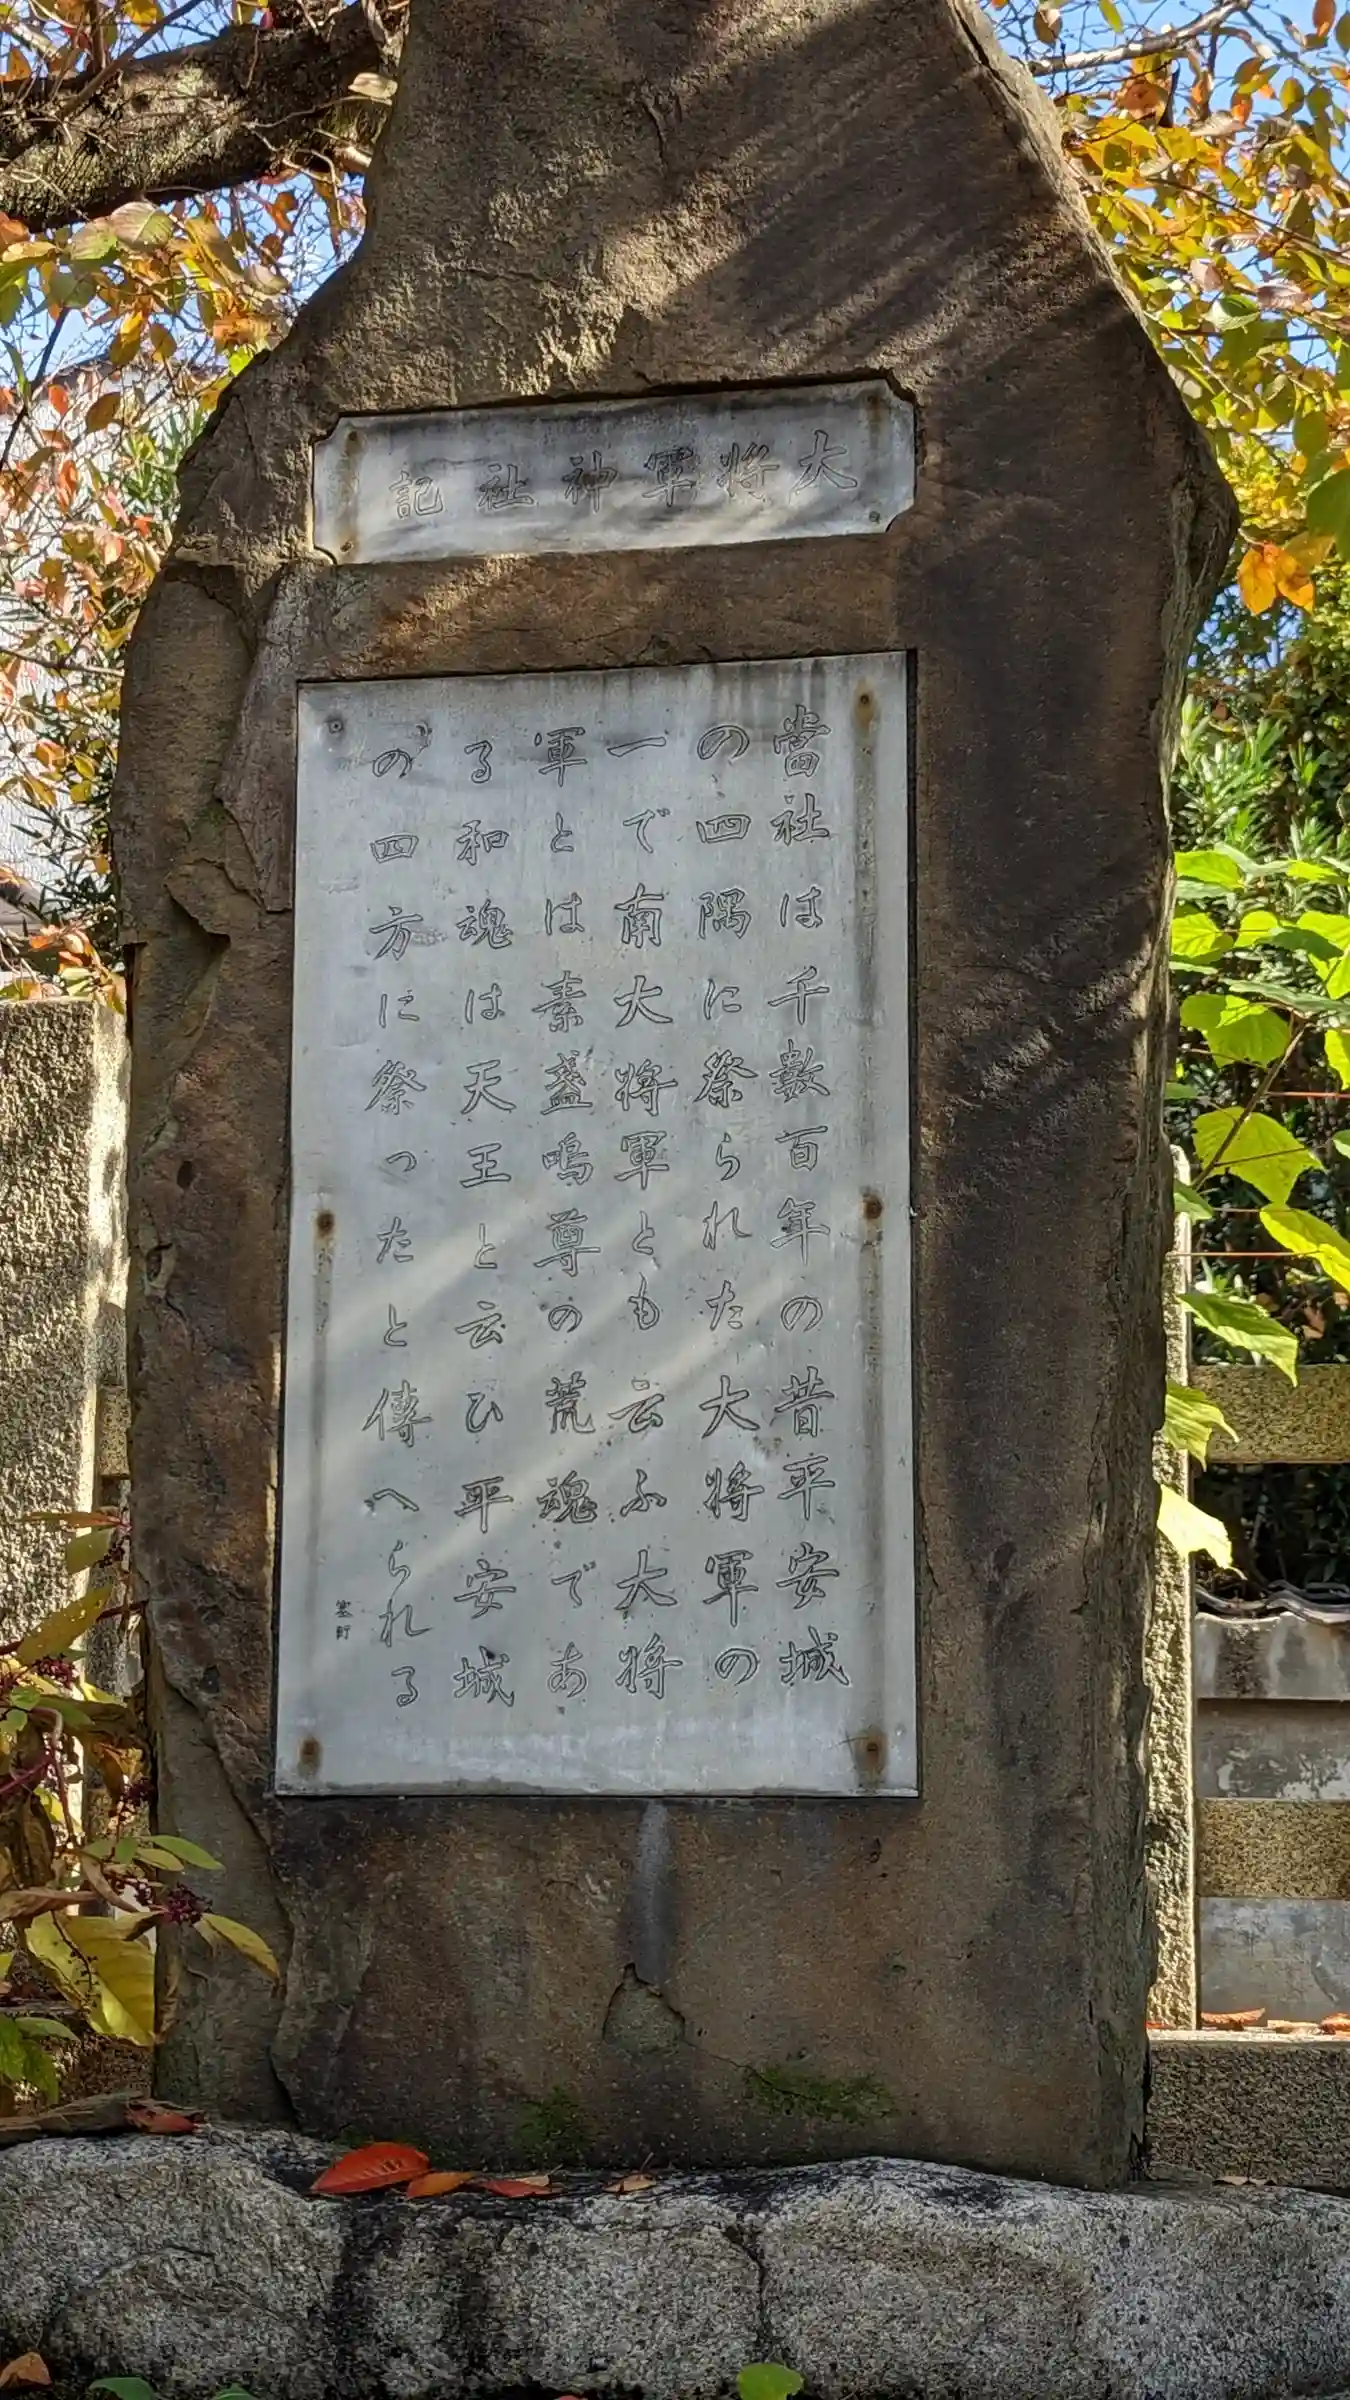 大将軍神社記
當社は千數百年の昔平安城
の四隅に祭られた大将軍の
一で南大将軍とも云ふ大将
軍とは素盞嗚尊の荒魂であ
る和魂は天王と云ひ平安城
の四方に祭ったと傳へられる